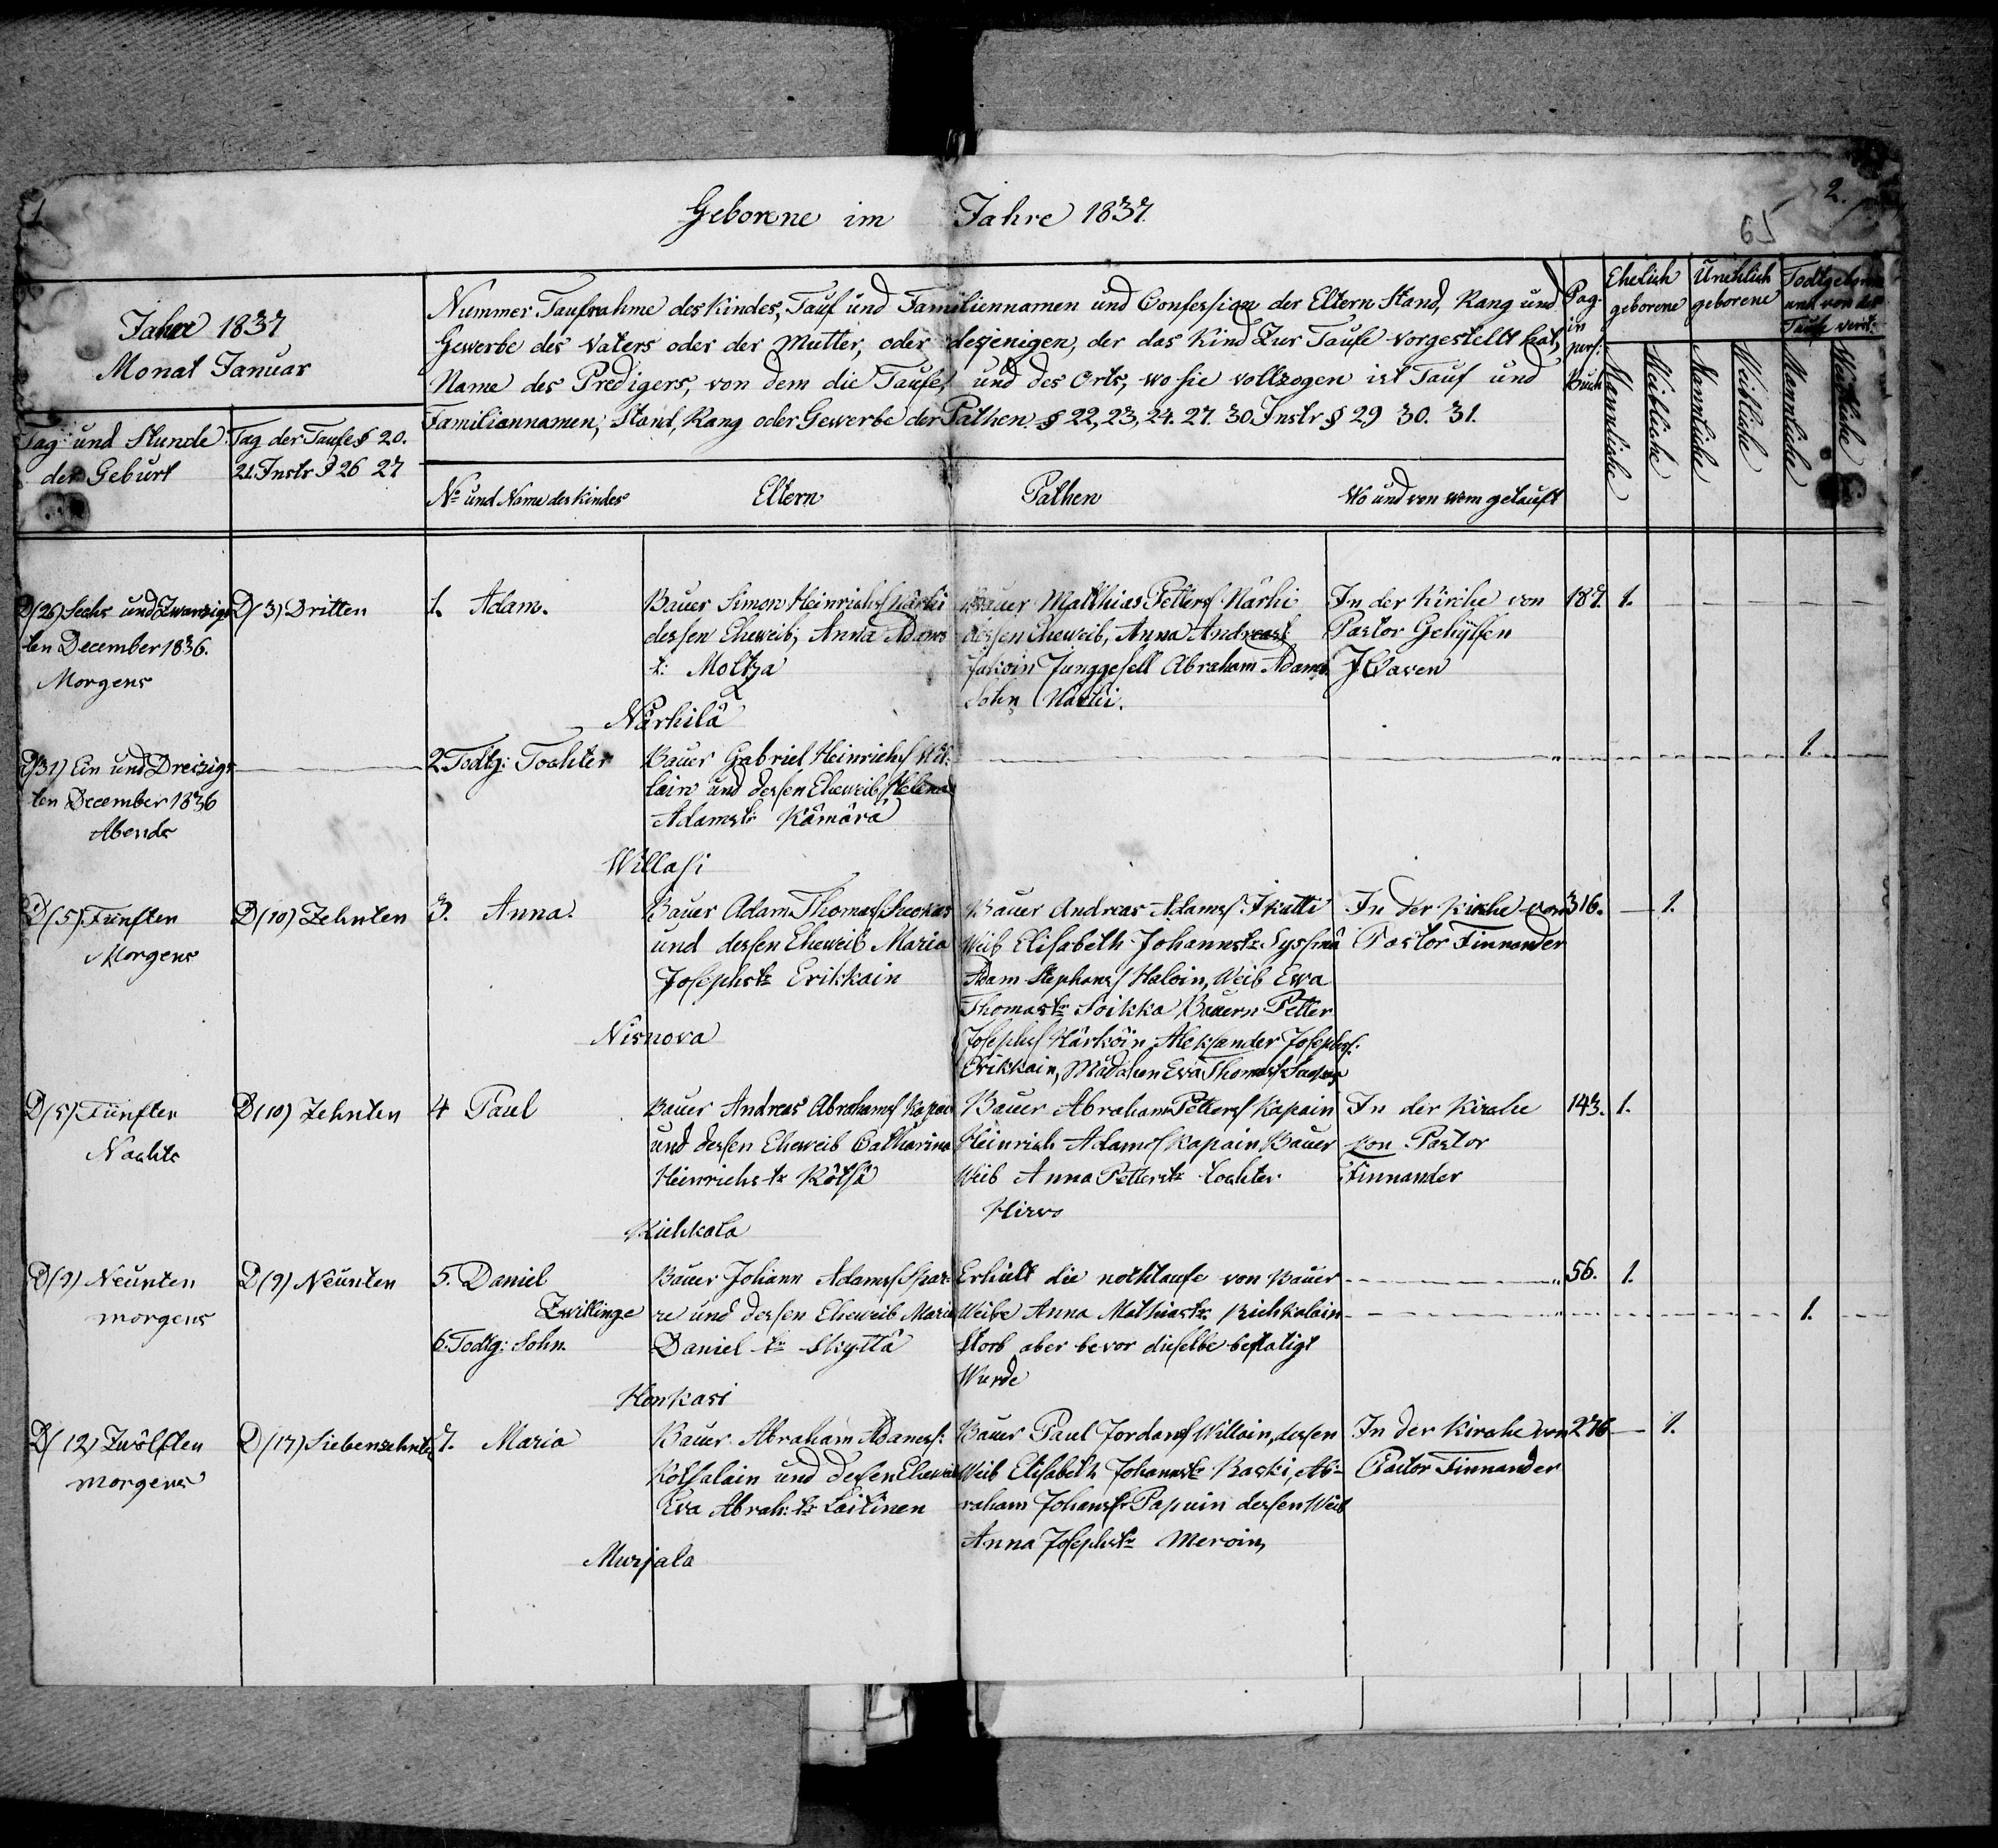 1
2.
65
Geborene im Jahre 1837.
Jahre 1837
Monat Januar
Tag und Stunde
der Geburt
Tag der Taufe § 20.
21. Instr § 26 27
Nummer Taufnahme des Kindes, Tauf und Familiennamen und Confession der Eltern Stand, Rang und
Gewerbe des Vaters oder der Mutter, oder desjenigen, der das Kind Zur Taufe vorgestellt hat,
Name des Predigers, von dem die Taufe und des Orts, wo sie vollzogen ist Tauf und
Familiannamen, Stand, Rang oder Gewerbe der Pathen § 22, 23, 24. 27. 30. Instr § 29 30. 31.
No und Name des Kindes
Eltern
Pathen
Wo und von wem getauft
Pag.
in
pers:
Buch
Ehelich
geborene
Unehlich
geborene
Todtgeborne
und vor der
Taufe verst:
Mannliche
Weibliche
Mannliche
Weibliche
Mannliche
Weibliche
D (26) Sechs und Zwanzigs
ten December 1836.
Morgens
D (3) Dritten
1. Adam.
Bauer Simon Heinrichs Närhi
dessen Eheweib, Anna Adams
t: Moltza
Närhilä
Bauer Matthias Petters Närhi
dessen Eheweib, Anna Andreast
Junggesell Abraham Adams
Sohn Närhi.
In der Kirche von
Pastor Gehylfen
187. 1.
D (31) Ein und Dreizigs
ten December 1836
Abends
2. Todtg: Tochter
Bauer Gabriel Heinrichs Wil
lain und dessen Eheweib Helena
Adamstr Kämärä
Willasi
1.
D (5) Fünften
Morgens
D (10) Zehnten
3. Anna.
Bauer Adam Thomas
und dessen Eheweib Maria
Josephstr Erikkain
Nisnova
Bauer Andreas Adams Ikatti
Weib Elisabeth Johannstr
Adam Stephans Haloin, Weib Ewa
Thomastr Soikka Bauern Petter
Josephs Härköin, Aleksander Josephs:
Erikkain, Mädchen Eva Thomas
In der Kirche von
Pastor Finnander
316. 1.
D (5) Fünften
Nachts
D (10) Zehnten
4 Paul
Bauer Andreas Abrahams Kapai
und dessen Eheweib Catharina
Heinrichs tr Kötsä
Kichkala
Bauer Abraham Petters Kapain
Heinrich Adams Kapain Bauer
Weib Anna Petterstr tochter
Hirvo
In der Kirche
von Pastor
Finnander
143. 1.
D (9) Neunten
morgens
D (9) Neunten
5. Daniel
Zwillinge
6. Todtg: Sohn.
Bauer Johann Adams Spar
re und dessen Eheweib Maria
Daniel tr Skyttä
Honkasi
Erhielt die nothtaufe von Bauer
Weibe Anna Mathiastr Kichkalain
Storb aber bevor dieselbe bestatigt
Wurde
56. 1.
1.
D (12) Zwölften
morgens
D (17) Siebenzehnten
7. Maria
Bauer Abraham Adams:
Kotsalain und dessen Eheweib
Eva Abrah: tr Laitinen
Murjala
Bauer Paul Jordans Willain, dessen
Weib Elisabeth Johannstr Raski, Ab-
raham Johans Papuin dessen Weib
Anna Josephstr Meroin,
In der Kirche von
Pastor Finnander
276 1.